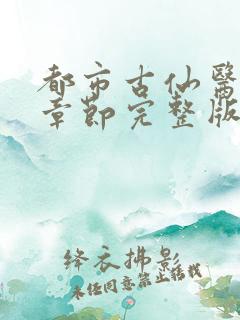 都市古仙醫
章節完整版
絳衣拂影
未经同意禁止转载